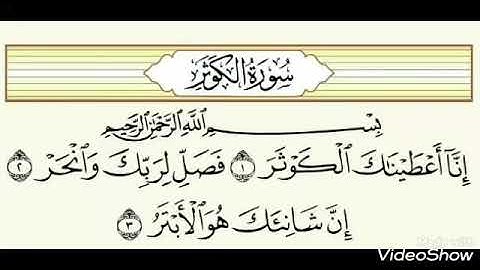 سُورَةُ الْكَوْثَرِ
بِسْمِ اللَّهِ الرَّحْمَٰنِ الرَّحِيمِ
إِنَّآ أَعْطَيْنَاكَ الْكَوْثَرَ ١ فَصَلِّ لِرَبِّكَ وَانْحَرْ ٢
إِنَّ شَانِئَكَ هُوَ الْأَبْتَرُ ٣
VideoShow